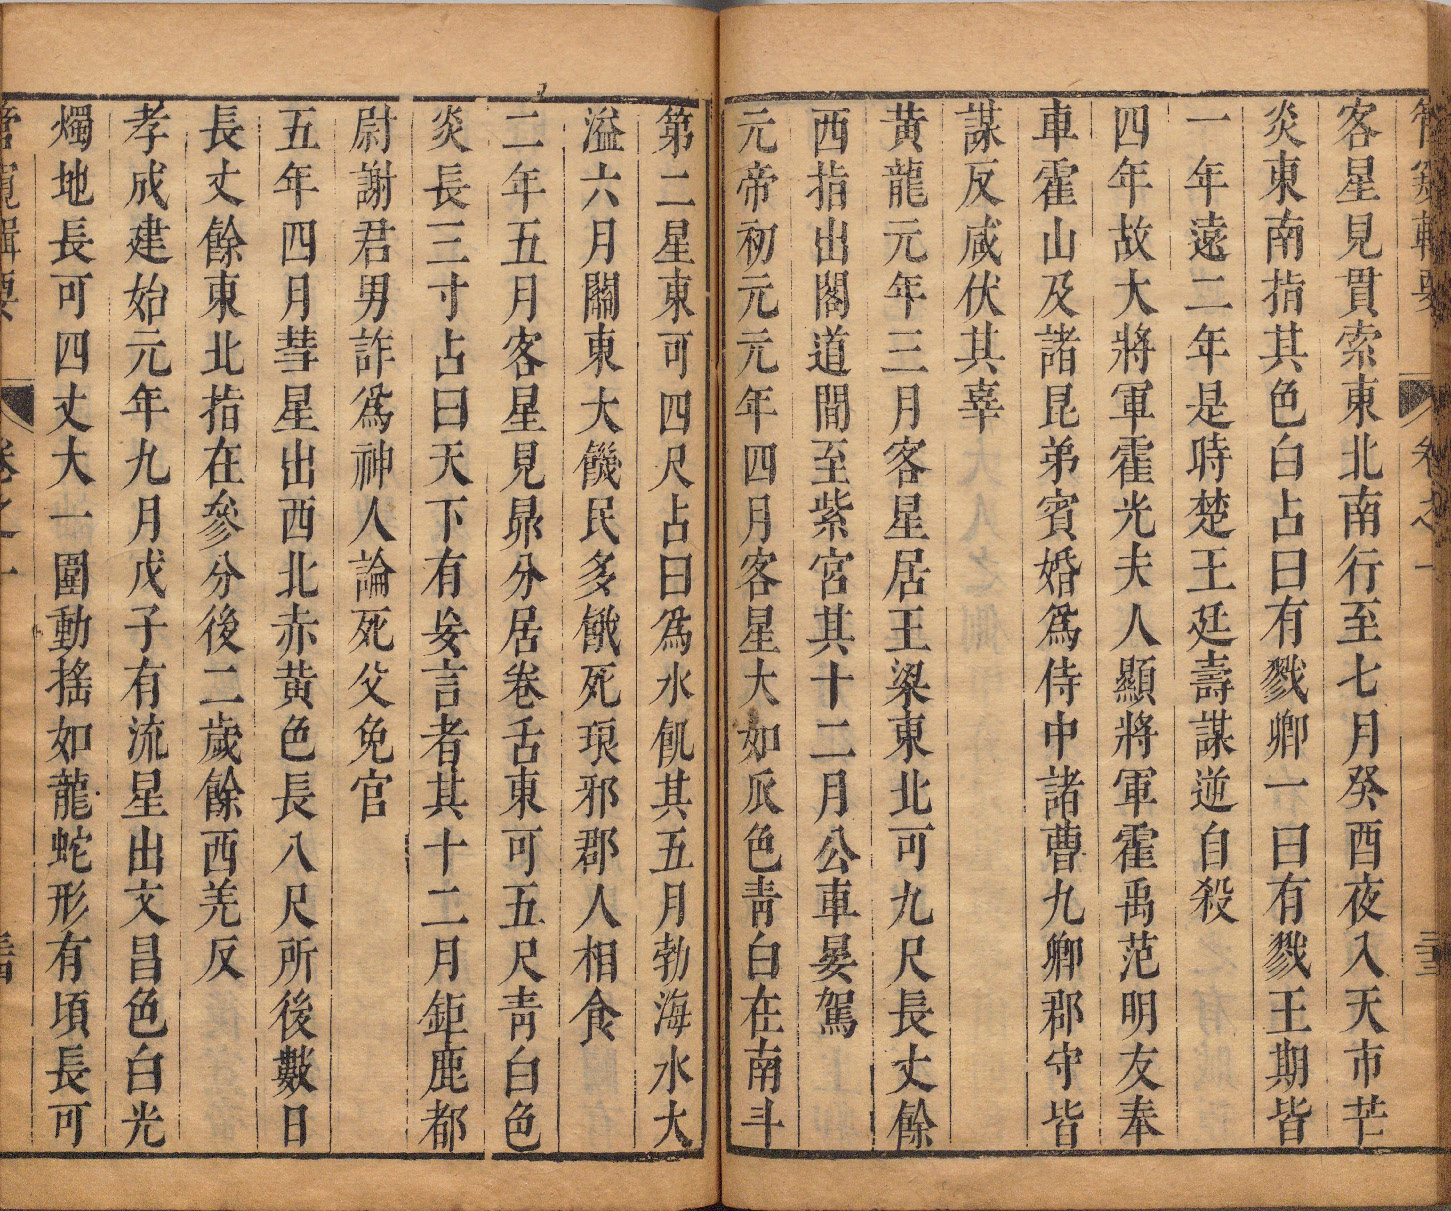 管窺輯要 卷之一 三十三
客星見貫索東北南行至七月癸酉夜入天市芒
炎東南指其色白占曰有戮卿一曰有戮王期皆
一年遠二年是時楚王廷壽謀逆自殺
四年故大將軍霍光夫人顯將軍霍禹范明友奉
車霍山及諸昆弟賓婚爲侍中諸曹九卿郡守皆
謀反咸伏其辜
黃龍元年三月客星居王梁東北可九尺長丈餘
西指出閣道間至紫宮其十二月公車晏駕
元帝初元元年四月客星大如瓜色青白在南斗
第二星東可四尺占曰爲水飢其五月勃海水大
溢六月關東大饑民多餓死琅邪郡人相食
二年五月客星見昴分居卷舌東可五尺青白色
炎長三寸占曰天下有妄言者其十二月鉅鹿都
尉謝君男詐爲神人論死父免官
五年四月彗星出西北赤黃色長八尺所後數日
長丈餘東北指在參分後二歲餘西羌反
孝成建始元年九月戊子有流星出文昌色白光
燭地長可四丈大一圍動搖如龍蛇形有頃長可
管窺輯要 卷之一